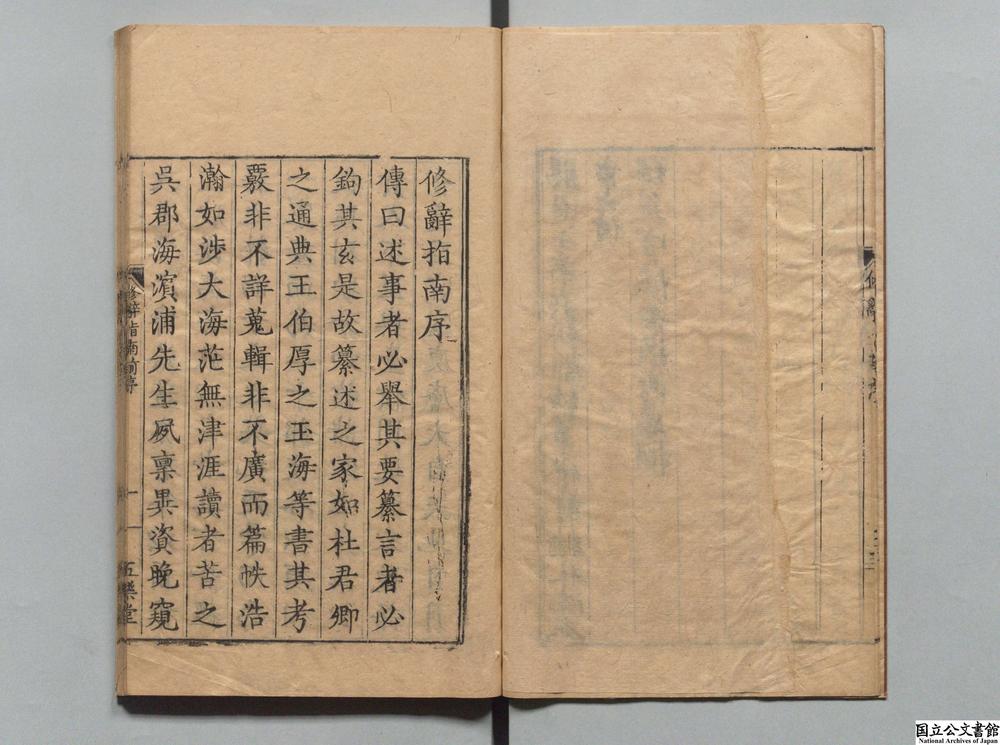 修辭指南序
傳曰述事者必舉其要纂言者必
鉤其玄是故纂述之家如杜君卿
之通典王伯厚之玉海等書其考
覈非不詳蒐輯非不廣而篇帙浩
瀚如涉大海茫無津涯讀者苦之
吳郡海濵浦先生夙禀異資晚窺
修辭指南前序
一
五樂堂
国立公文書館
National Archives of Japan